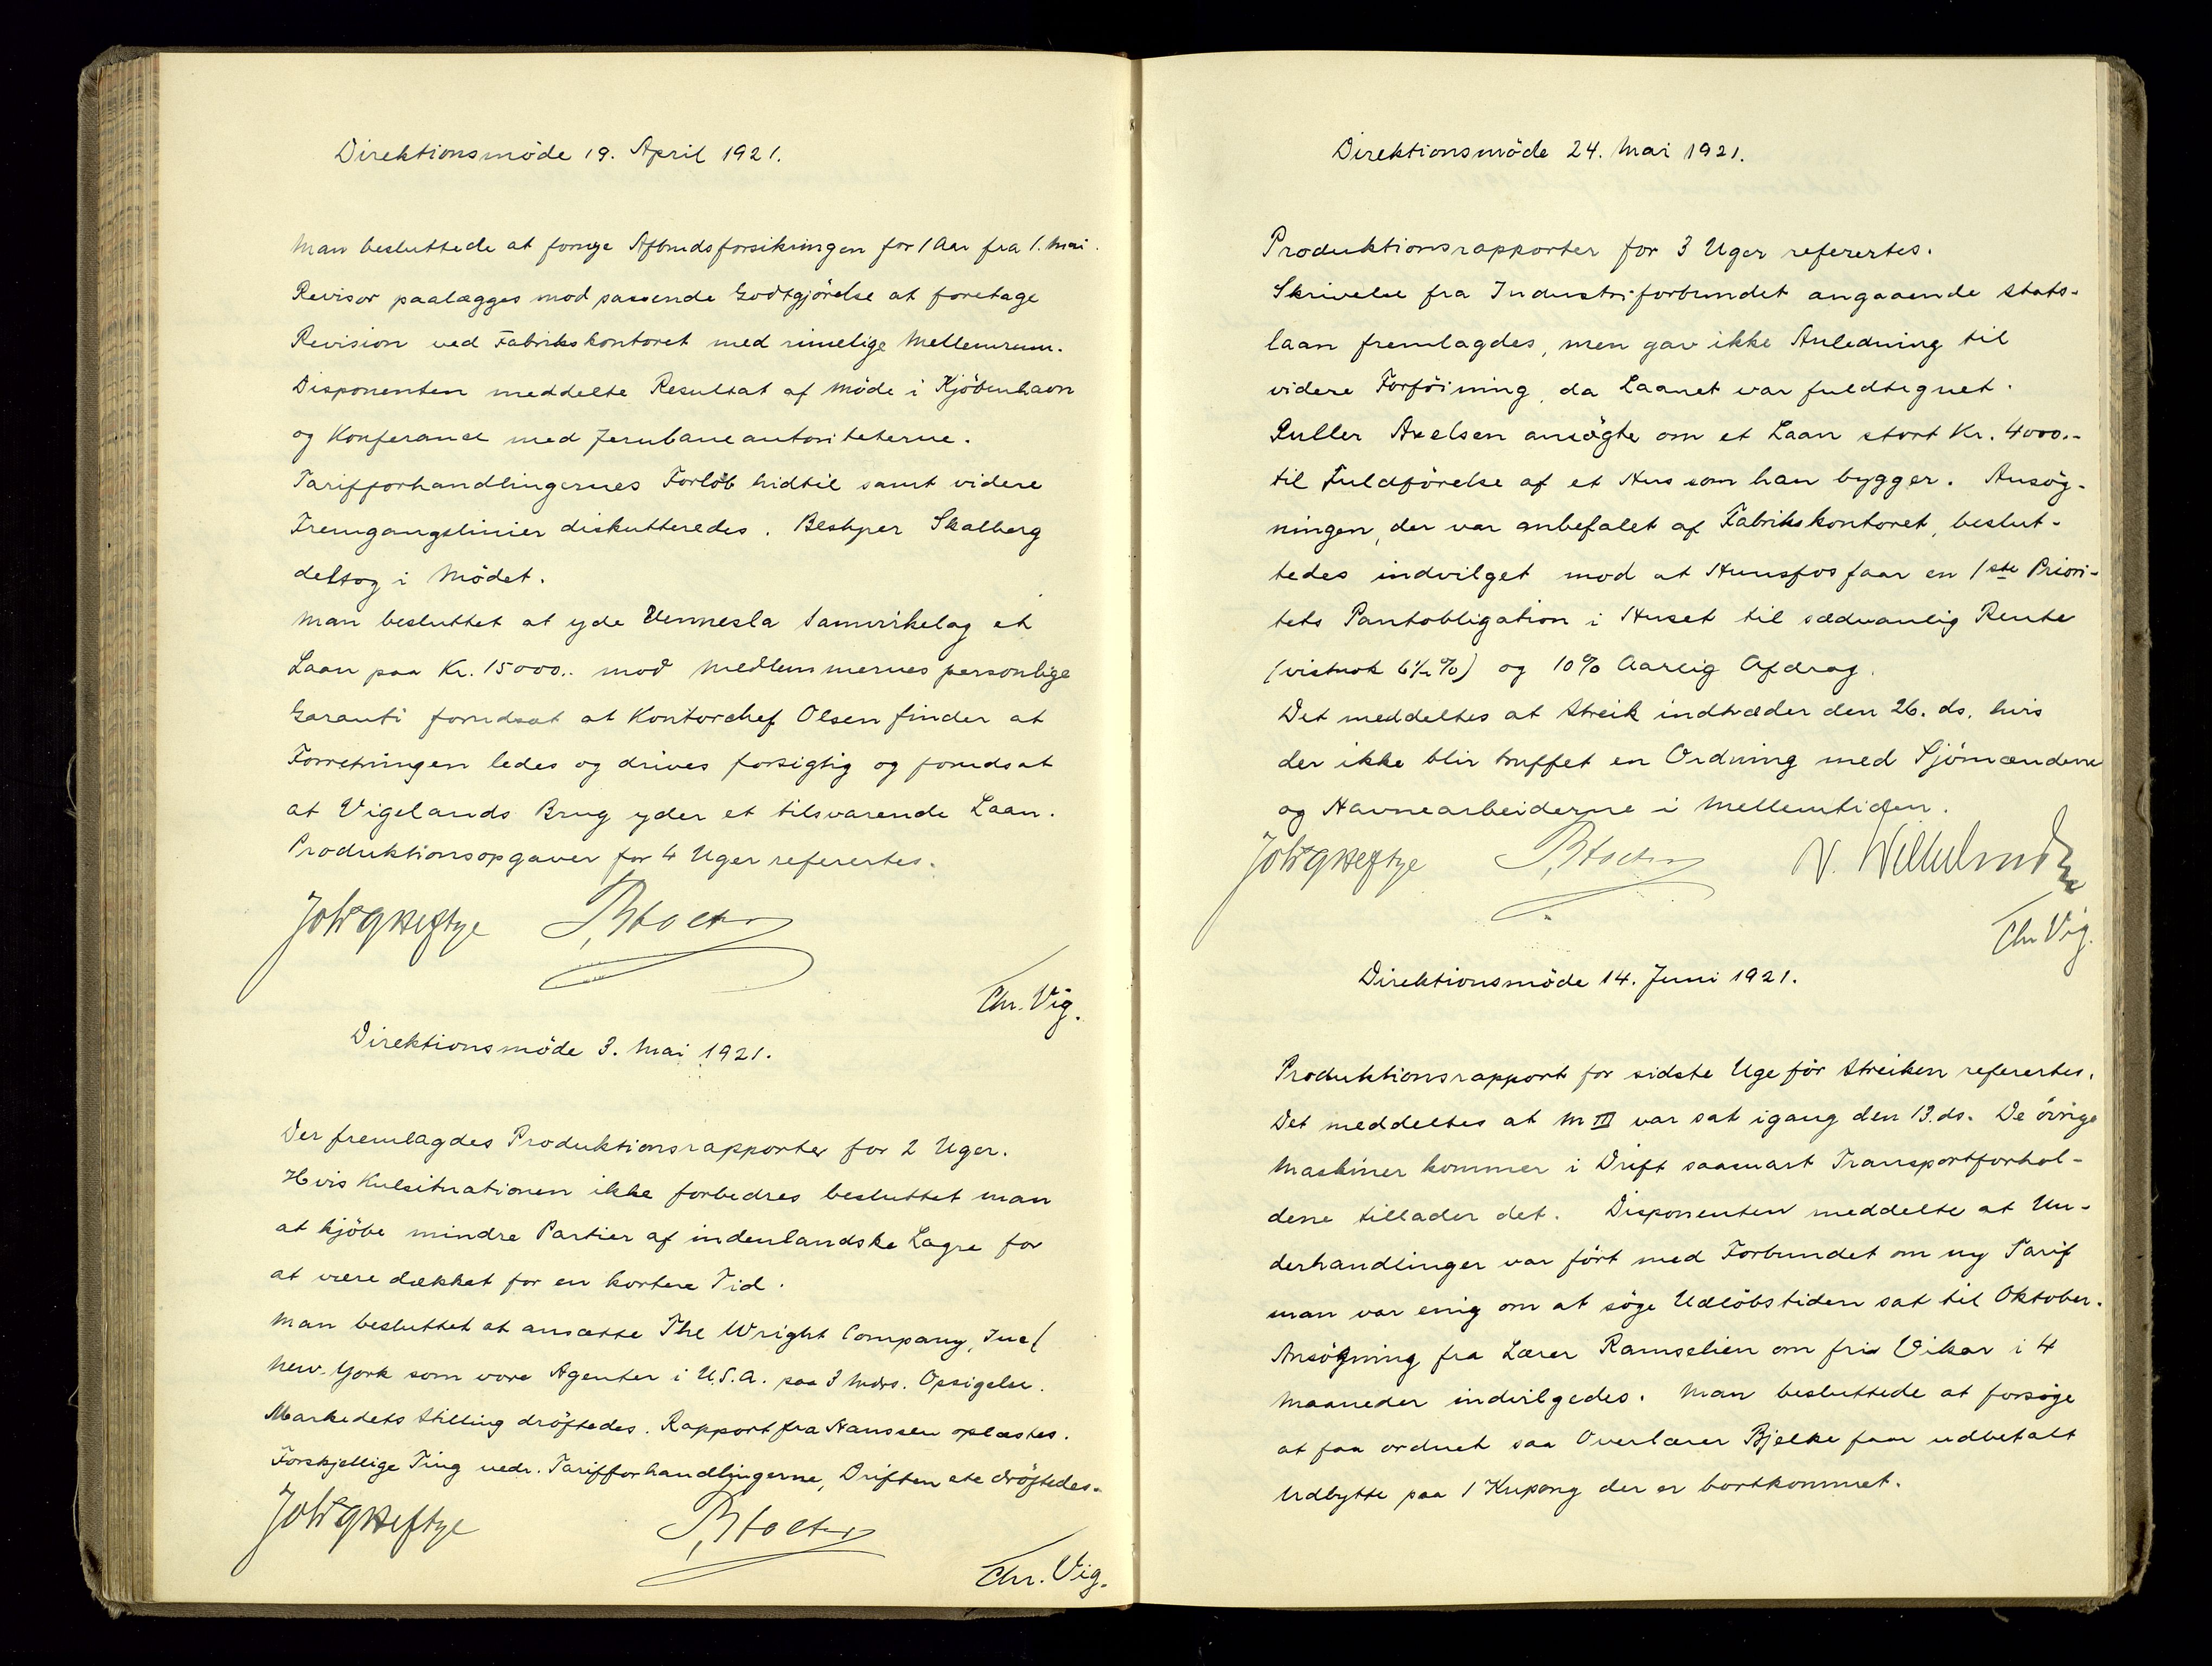 Direktionsmöde 19. April 1921.
Man besluttede at fornye Afbrudsforsikringen for 1 Aar fra 1. Mai.
Revisor paalægges mod passende Godtgjörelse at foretage
Revision ved Fabrikskontoret med rimelige Mellemrum.
Disponenten meddelte Resultat af Möde i Kjöbenhavn
og Konferance med Jernbaneautoriteterne.
Tarifforhandlingernes Forlöb hidtil samt videre
Fremgangslinier diskutteredes. Bestyrer Skalberg
deltog i Mödet.
Man besluttet at yde Vennesla Samvirkelag et
Laan paa Kr. 15000.. mod Medlemmernes personlige
Garanti forudsat at Kontorchef Olsen finder at
Forretningen ledes og drives forsigtig og forudsat
at Vigelands Brug yder et tilsvarende Laan.
Produktionsopgaver for 4 Uger refererdes.
Chr. Vig.
Direktionsmöde 3. Mai 1921.
Der fremlagdes Produktionsrapporter for 2 Uger.
Hvis Kulsituationen ikke forbedres besluttet man
at kjöbe mindre Partier af indenlandske Lagre for
at være dækket for en kortere Tid.
Man besluttet at ansætte The Wright Company, Inc/
New-York som vore Agenter i U.S.A. paa 3 Mdrs. Opsigelse.
Markedets Stilling dröftedes. Rapport fra Hanssen oplæstes.
Forskjellige Ting vedr. Tarifforhandlingerne, Driften etc dröftedes.
Chr. Vig.
Direktionsmöde 24. Mai 1921.
Produktionsrapporter for 3 Uger referertes.
Skrivelse fra Industriforbundet angaaende Stats-
laan fremlagdes, men gav ikke Anledning til
videre Forföining, da Laanet var fuldtegnet.
Ruller Axelsen ansögte om et Laan stort Kr. 4000.-
til Fuldförelse af et Hus som han bygger. Ansög-
ningen, der var anbefalet af Fabrikskontoret, beslut-
tedes indvilget mod at Hunsfos faar en 1ste Priori-
tets Pantobligation i Huset til sædvanlig Rente
(vistnok 6½%) og 10% Aarlig Afdrag.
Det meddeltes at Streik indtræder den 26. ds. hvis
der ikke blir truffet en Ordning med Sjömændene
og Havnearbeiderne i Mellemtiden.
Chr Vig.
Direktionsmöde 14. Juni 1921.
Produktionsrapport for sidste Uge för Streiken referertes.
Det meddeltes at M III var sat igang den 13. ds. De övrige
Maskiner kommer i Drift saasnart Transportforhol-
dene tillader det. Disponenten meddelte at Un-
derhandlinger var fört med Forbundet om ny Tarif
man var enig om at söge Udlöbstiden sat til Oktober.
Ansögning fra Lærer Ramselien om fri Vikar i 4
Maaneder indvilgedes. Man besluttede at forsöge
at faa ordnet saa Overlærer Bjelke faar udbetalt
Udbytte paa 1 Kupong der er bortkommet.